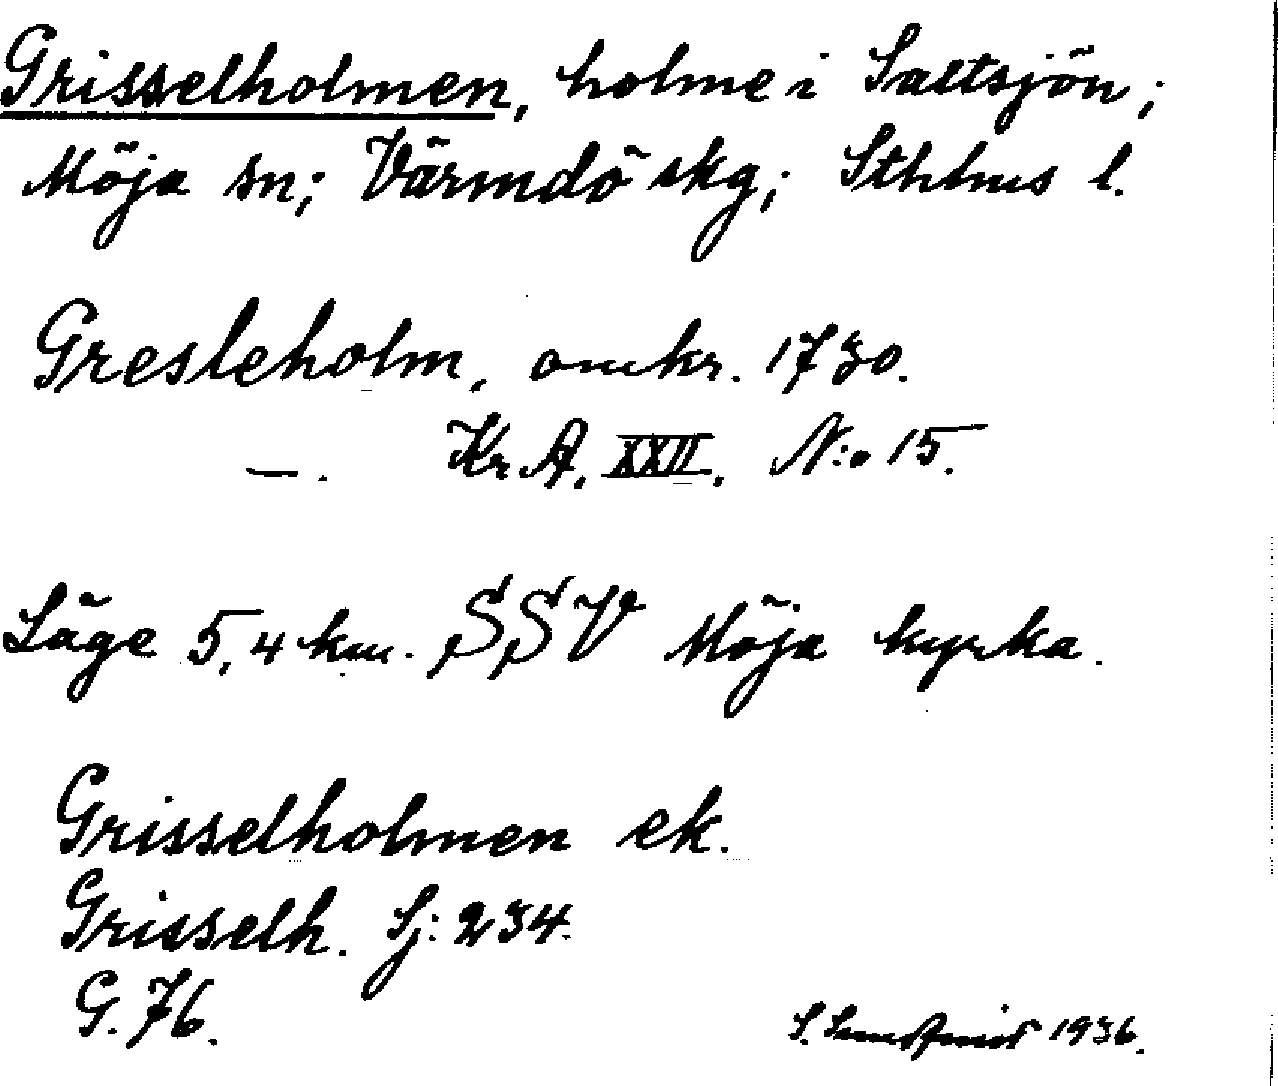 Grisselholmen, holme i Saltsjön;
Möja sn; Värmdö skg; Sthlms l.
Gresleholm, omkr. 1730.
—. Kr.A. XXII. N:o 15.
Läge 5,4 km. SSV Möja kyrka.
Grisselholmen ek.
Grisselh. Sj: 234.
G. 76.
S. 1936.